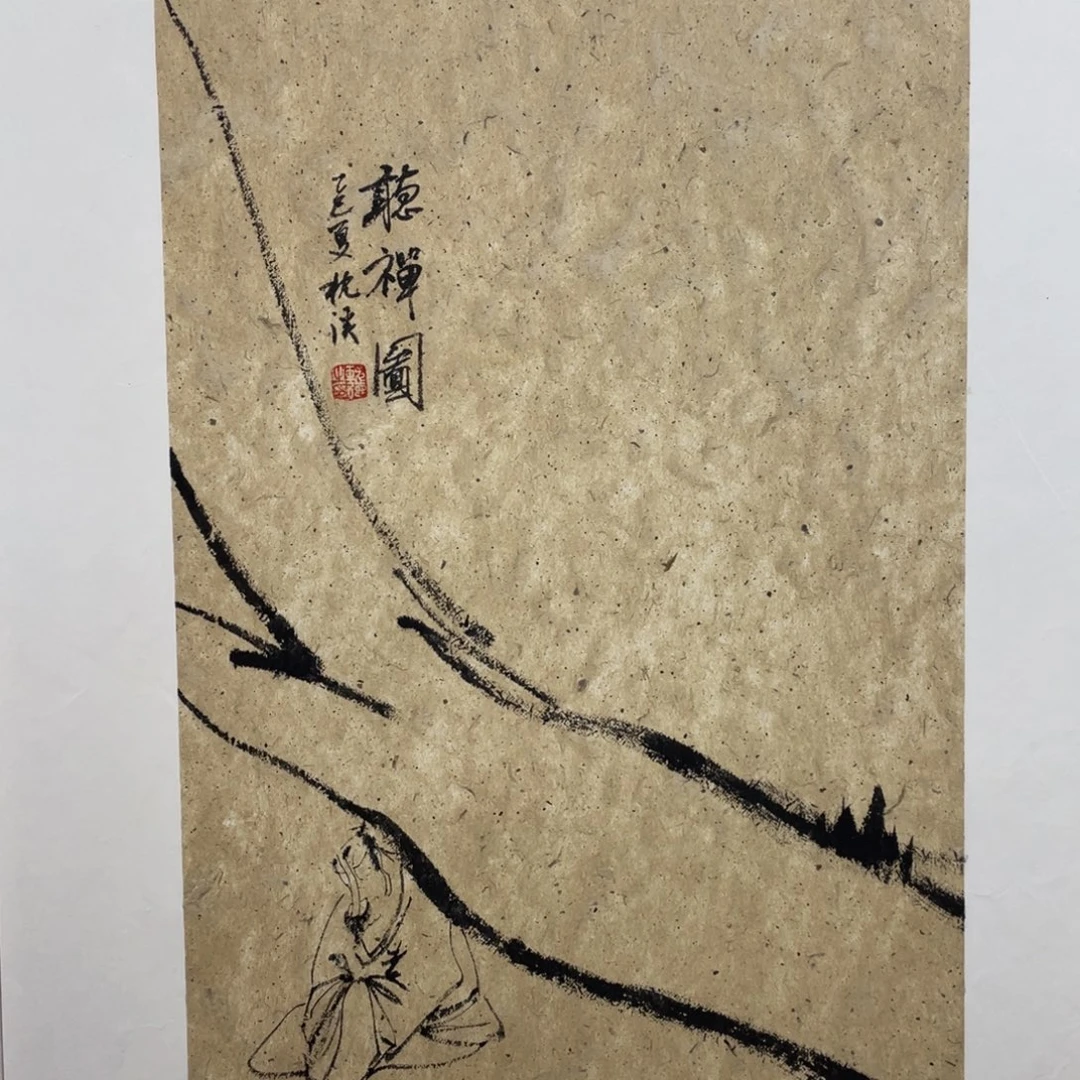 聽禪圖
乙巳夏杭洪